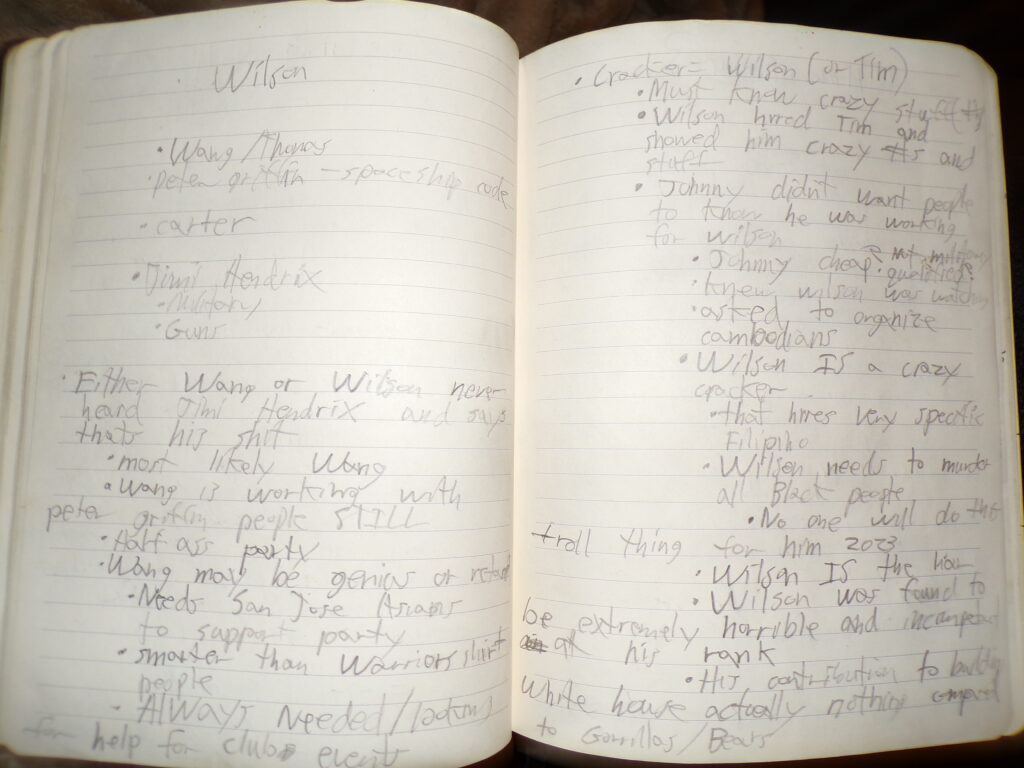 Wilson
• Wang/Thomas
• peter griffin - space ship code
• carter
• Jimi Hendrix
• Military
• Guns
• Either Wang or Wilson never
heard Jimi Hendrix and says
thats his shit
• most likely Wang
• Wang is working with
peter griffin people STILL
• Half ass party
• Wang may be genius or retard
• Needs San Jose Asians
to support party
• smarter than Warriors shirt
people
• ALWAYS Needed
for help for club events
• Cracker = Wilson (or Tim)
• Must know crazy stuff
• Wilson hired Tim and
showed him crazy #s and
stuff
• Johnny didn't want people
to know he was working
for wilson
• Johnny cheap
• knew wilson was
• asked to organize
cambodians
• Wilson IS a crazy
cracker
• that hires very specific
Filipino
• Wilson needs to murder
all Black people
• No one will do this
troll thing for him 2023
• Wilson IS the
• Wilson was found to
be extremely horrible and incompetent
at his rank
• His contribution to building
White house actually nothing compared
to Gorrillas/Bears